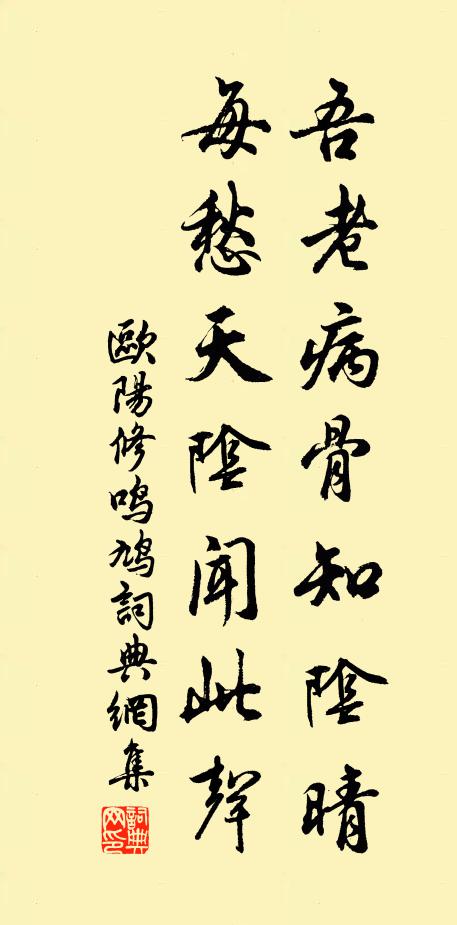 吾老病骨知陰晴
每愁天陰聞此聲
歐陽修鳴鳩詞典網集
詞典
网印